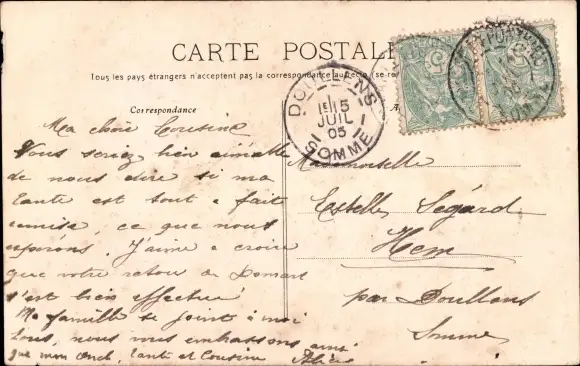 CARTE POSTALE
Tous les pays étrangers n'acceptent pas la correspondance au recto (se
Correspondance
DOULLENS
1E 15
JUIL
05
SOMME
Ma chère Cousine
Vous seriez bien aimable
de nous dire si ma
tante est tout a fait
remise, ce que nous
espérons. J'aime a croire
que votre retour de Domart
s'est bien effectué
Ma famille se joint à moi
tous, nous vous embrassons ainsi
que mon Oncle, Tante et Cousine
Mademoiselle
Estelle Ségard
Hem
par Doullens
Somme